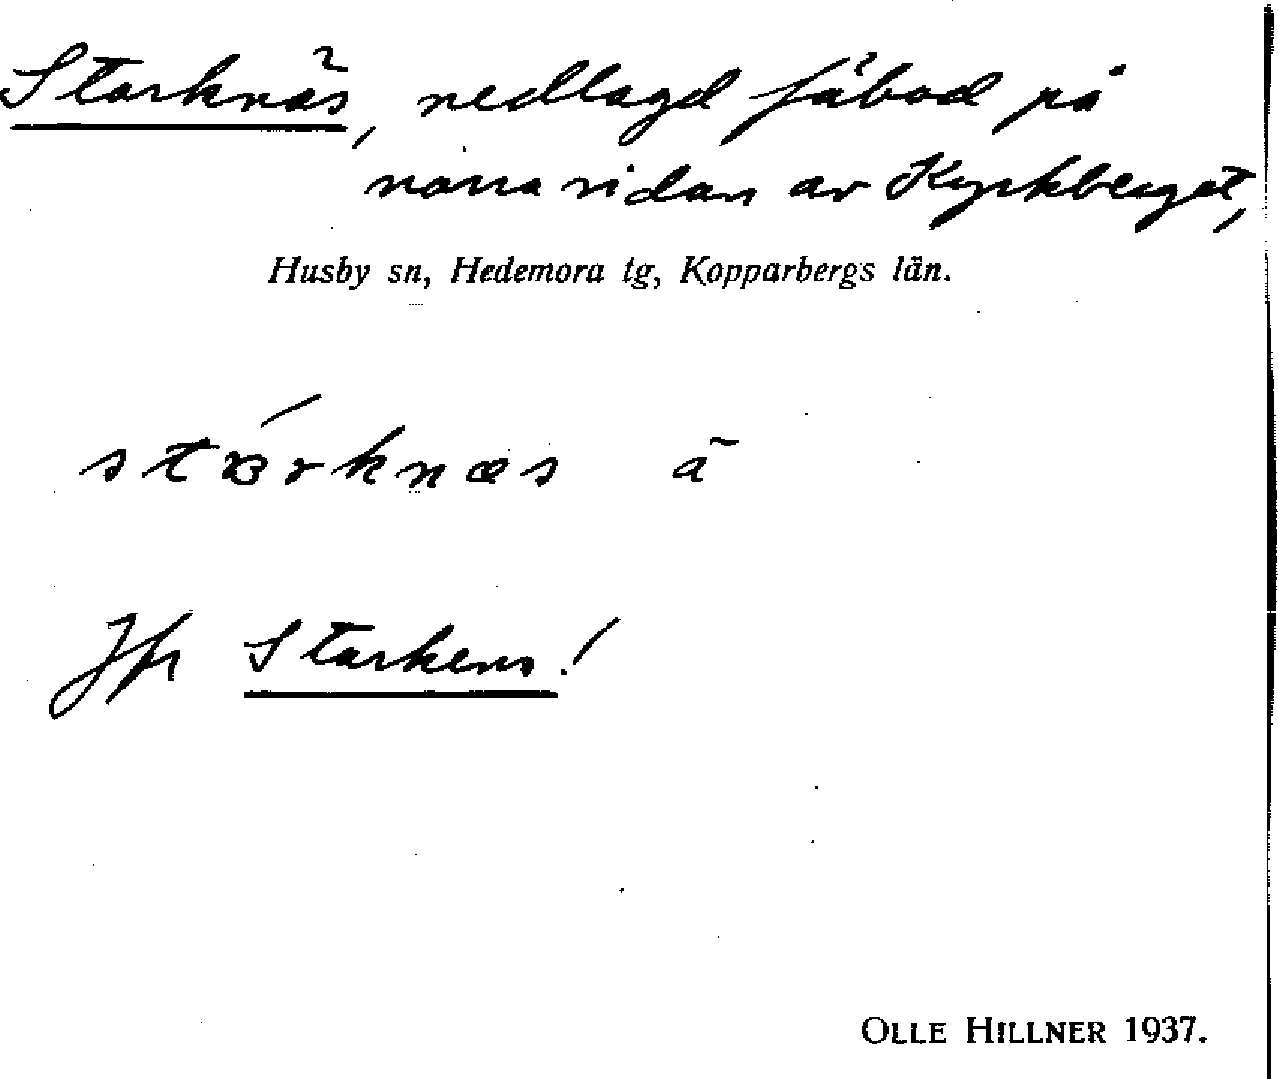 Starknäs, nedlagd fäbod på
norra sidan av Kyrkberget,
Husby sn, Hedemora tg, Kopparbergs län.
Jfr Starkens!
OLLE HILLNER 1937.